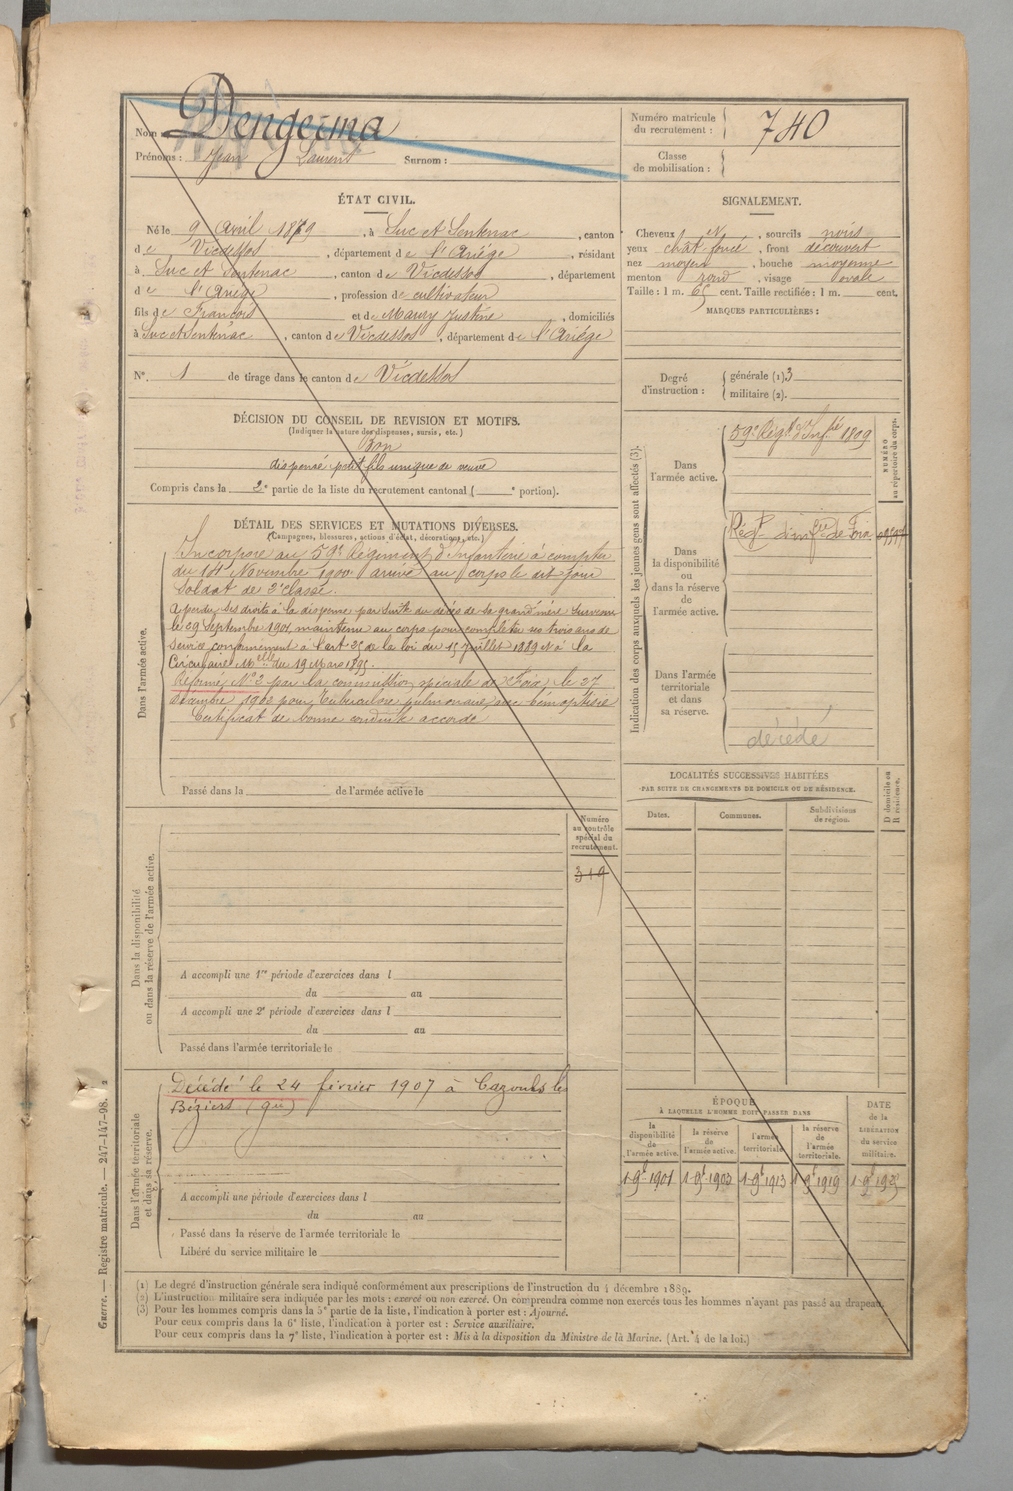 Nom : Dengerma
Prénoms : Jean Laurent Surnom :
Numéro matricule du recrutement : 740
Classe de mobilisation :
ÉTAT CIVIL.
Né le 9 Avril 1879, à Suc et Sentenac, canton
de Vicdessos, département de l'Ariège, résidant
à Suc et Sentenac, canton de Vicdessos, département
de l'Ariège, profession de cultivateur
fils de François et de Maury Justine, domiciliés
à Suc et Sentenac, canton de Vicdessos, département de l'Ariège
N° 1 de tirage dans le canton de Vicdessos
SIGNALEMENT.
Cheveux N, sourcils noirs
yeux chât foncé, front découvert
nez moyen, bouche moyenne
menton rond, visage ovale
Taille : 1 m. 65 cent. Taille rectifiée : 1 m. cent.
MARQUES PARTICULIÈRES :
Degré d'instruction : générale (1) 3
militaire (2).
DÉCISION DU CONSEIL DE REVISION ET MOTIFS.
(Indiquer la nature des dispenses, sursis, etc.)
Bon
dispensé petit fils unique de veuve
Compris dans la 2e partie de la liste du recrutement cantonal ( e portion).
DÉTAIL DES SERVICES ET MUTATIONS DIVERSES.
(Campagnes, blessures, actions d'éclat, décorations, etc.)
Dans l'armée active.
Incorporé au 59e Régiment d'Infanterie à compter
du 14 Novembre 1900 arrivé au corps le dit jour
soldat de 2e classe.
A perdu ses droits à la dispense par suite du décès de sa grand'mère survenu
le 29 Septembre 1901, maintenu au corps pour compléter ses trois ans de
service conformément à l'art 25 de la loi du 15 Juillet 1889 et à la
Circulaire Melle du 19 Mars 1895.
Réformé N°2 par la commission spéciale de Foix le 27
décembre 1902 pour Tuberculose pulmonaire avec hémoptisie
Certificat de bonne conduite accordé
Passé dans la de l'armée active le
Indication des corps auxquels les jeunes gens sont affectés (3).
NUMÉRO au répertoire du corps.
Dans l'armée active.
59e Régt d'Infrie 1809
Dans la disponibilité ou dans la réserve de l'armée active.
Régt d'infrie de Foix
Dans l'armée territoriale et dans sa réserve.
décédé
LOCALITÉS SUCCESSIVES HABITÉES
PAR SUITE DE CHANGEMENTS DE DOMICILE OU DE RÉSIDENCE.
Dates. Communes. Subdivisions de région. D domicile ou R résidence.
Dans la disponibilité ou dans la réserve de l'armée active.
Numéro au contrôle spécial du recrutement.
319
A accompli une 1re période d'exercices dans l
du au
A accompli une 2e période d'exercices dans l
du au
Passé dans l'armée territoriale le
Dans l'armée territoriale et dans sa réserve.
Décédé le 24 février 1907 à Cazouls les
Béziers
A accompli une période d'exercices dans l
du au
Passé dans la réserve de l'armée territoriale le
Libéré du service militaire le
ÉPOQUE
À LAQUELLE L'HOMME DOIT PASSER DANS
la disponibilité de l'armée active.
la réserve de l'armée active.
l'armée territoriale.
la réserve de l'armée territoriale.
DATE de la LIBÉRATION du service militaire.
1 9bre 1901 1 9bre 1903 1 9bre 1913 1 9bre 1919 1 9bre 1925
(1) Le degré d'instruction générale sera indiqué conformément aux prescriptions de l'instruction du 4 décembre 1889.
(2) L'instruction militaire sera indiquée par les mots : exercé ou non exercé. On comprendra comme non exercés tous les hommes n'ayant pas passé au drapeau.
(3) Pour les hommes compris dans la 5e partie de la liste, l'indication à porter est : Ajourné.
Pour ceux compris dans la 6e liste, l'indication à porter est : Service auxiliaire.
Pour ceux compris dans la 7e liste, l'indication à porter est : Mis à la disposition du Ministre de la Marine. (Art. 4 de la loi.)
Guerre. — Registre matricule. — 247-147-98.